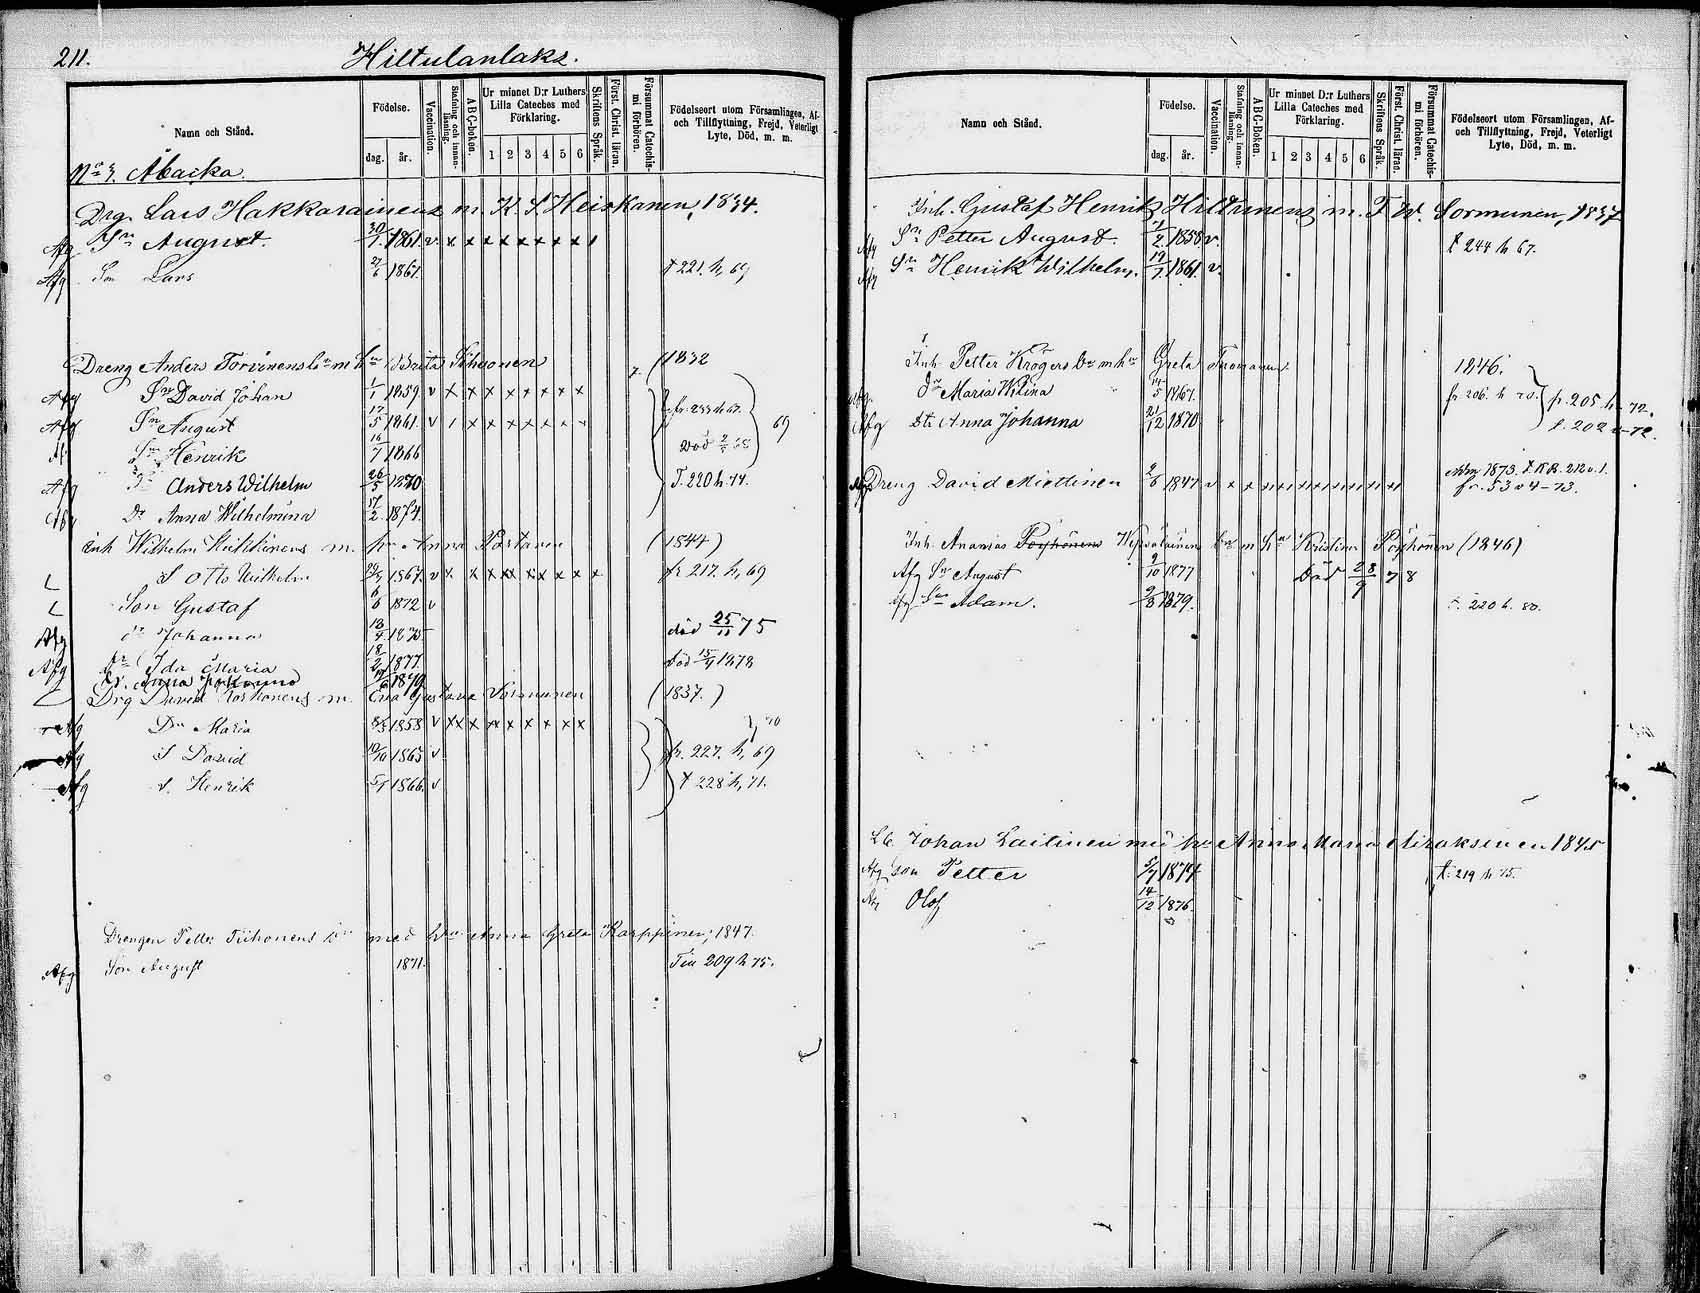 211.
Hiltulanlaks.
Namn och Stånd.
Födelse.
dag.
år.
Vaccination.
Stafning och innanläsning.
ABC-boken.
Ur minnet D:r Luthers Lilla Cateches med Förklaring.
1 2 3 4 5 6
Skriftens Språk.
Först. Christ. läran.
Försummat Catechismi förhören.
Födelseort utom Församlingen, Af- och Tillflyttning, Frejd, Veterligt Lyte, Död, m. m.
No 3. Åbacka.
Drg. Lars Hakkarainens m. K. S. Heiskanen, 1834.
Afg Sn August. 30/7. 1861. v. x x x x x x x x
Afg Son Lars 27/6 1867. t 221. h, 69
Dreng Anders Torvinens m hu Brita Tihuonen (1832
Afg Sn David Johan 1/1 1859. v x x x x x x x x
Afg Sn August 17/5 1861. v x x x x x x fr. 233 h 67. 69
Af Sn Henrik 16/7 1866 död
Afg Anders Wilhelm 26/5 1870 T. 220 h. 74.
Afg Dr Anna Wilhelmina 17/2. 1874.
Inh Wilhelm m. hu Anna (1844)
S Otto Wilhelm 1867. v x x x x x x x x fr 217. h, 69
Son Gustaf 6/6 1872 v
Afg dr Johanna 13/4 1875 död 25/11 75
Afg dr Ida Maria 18/2 1877. död 15/9 1878
dr. Anna 1879
Drg David Koskonens m. Eva Gustava Sormunen (1837.)
Afg Dr Maria 8/3 1858 v x x x x x x x x 70
Afg S David 19/10 1863 v fr. 227. h, 69
Afg s. Henrik 5/1 1866. v t 228 h, 71.
Drengen Petter Tiihonens med hu Anna Greta Karppinen, 1847.
Afg Son August 1871. Till 209 h 75.
Namn och Stånd.
Födelse.
dag.
år.
Vaccination.
Stafning och innanläsning.
ABC-Boken.
Ur minnet D:r Luthers Lilla Cateches med Förklaring.
1 2 3 4 5 6
Skriftens Språk.
Först. Christ. läran.
Försummat Catechismi förhören.
Födelseort utom Församlingen, Af- och Tillflyttning, Frejd, Veterligt Lyte, Död, m. m.
Inh. Gustaf Henrik Hiltunens m. F. W. Sormunen, 1837
Afg Sn Petter August. 1/2. 1858 v. t 244 h 67.
Afg Sn Henrik Wilhelm. 19/7. 1861. v.
Inh. Petter Krögers m hu Greta 1846.
Afg. dr Maria Wilina 14/5 1867. fr 206. h 70. fr. 205. h 72.
Afg dr Anna Johanna 21/12 1870 t. 202 v 72.
Afg Dreng David Miettinen 2/6 1847 v x x x x x x x x x x 1873. fr. 53 v 4-73.
Inh. Ananias Pöyhönens m hu Kristina Pöyhönen (1846)
Afg Sn August 9/10 1877 Död 28/9 78
Afg Son Adam. 9/8 1879. t. 220 h. 80.
Johan Laitinen med hu Anna Maria 1845
Afg son Petter 5/7 1874 t. 219 h 75.
Afg Olof 14/12 1876.